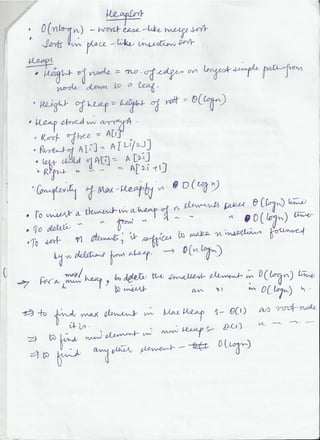 HeapSort
• O(nlogn) - worst case - like merge sort
• Sorts in place - like insertion sort
Heaps
• Height of node = no. of edges on longest simple path from
node down to a leaf.
• Height of heap = height of root = Θ(logn)
• Heap stored in array A.
• Root of tree = A[1]
• Parent of A[i] = A[⌊i/2⌋]
• Left child of A[i] = A[2i]
• Right " " " = A[2i+1]
• Complexity of Max-Heapify is O(logn)
• To insert a element in a heap of n elements takes Θ(logn) time
• To delete " " from " " " " " O(logn) time.
• To sort n elements, it suffices to make n insertions followed
by n deletions from a heap. → O(nlogn)
→ For a max/min heap, to delete the smallest element in O(logn) time
to insert an in O(logn) ".
⇒ to find max element in Max Heap :- Θ(1) as root node
it is.
⇒ to find min element in min Heap :- Θ(1) " " "
⇒ to find any other element - O(logn)